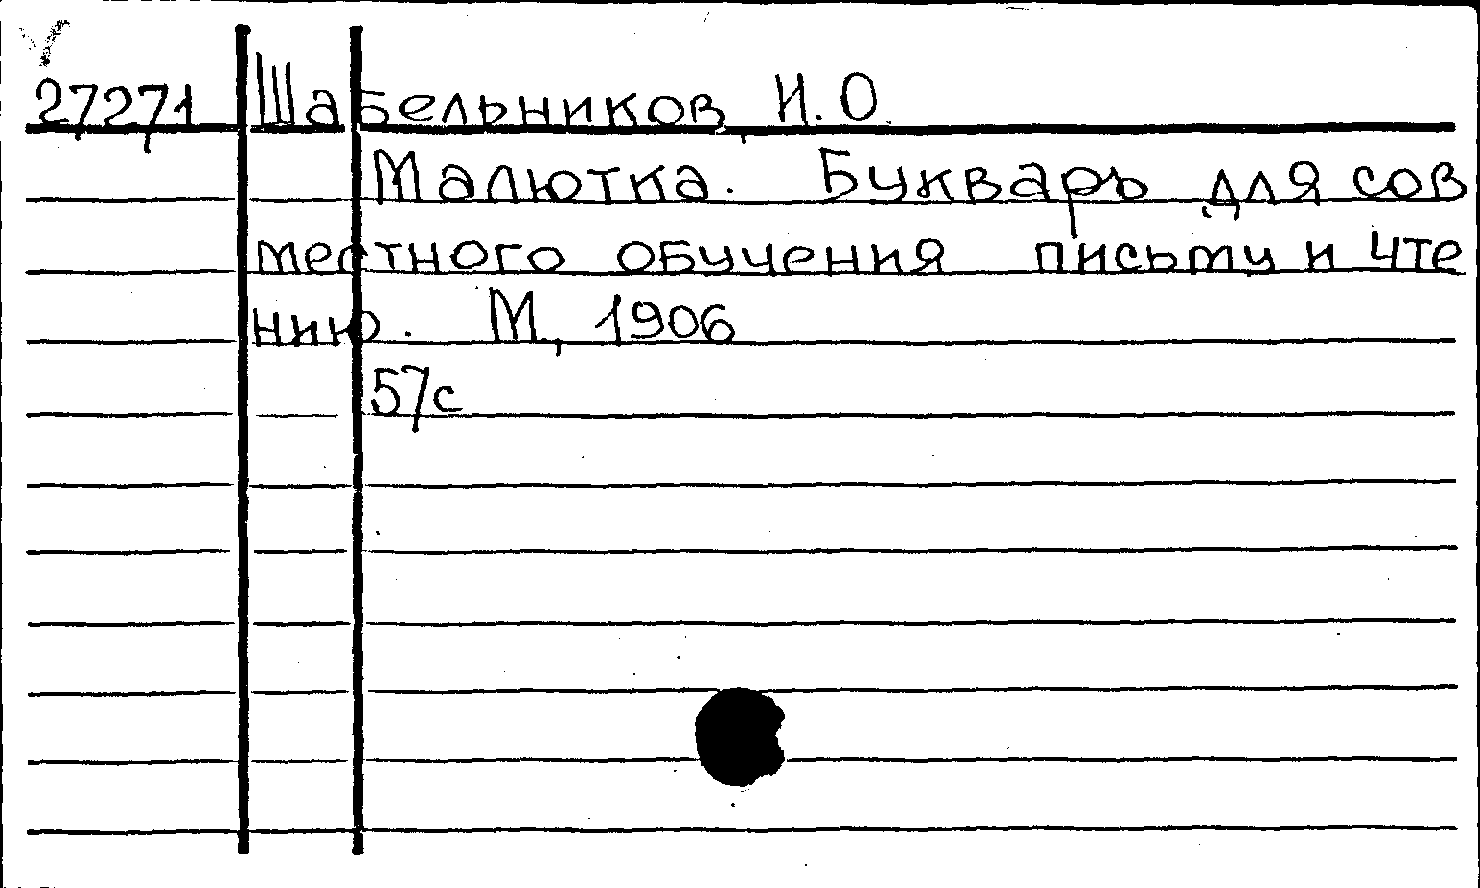 27271 Шабельников, И.О.
Малютка. Букварь для сов
местного обучения письму и чте
нию. М., 1906
57с